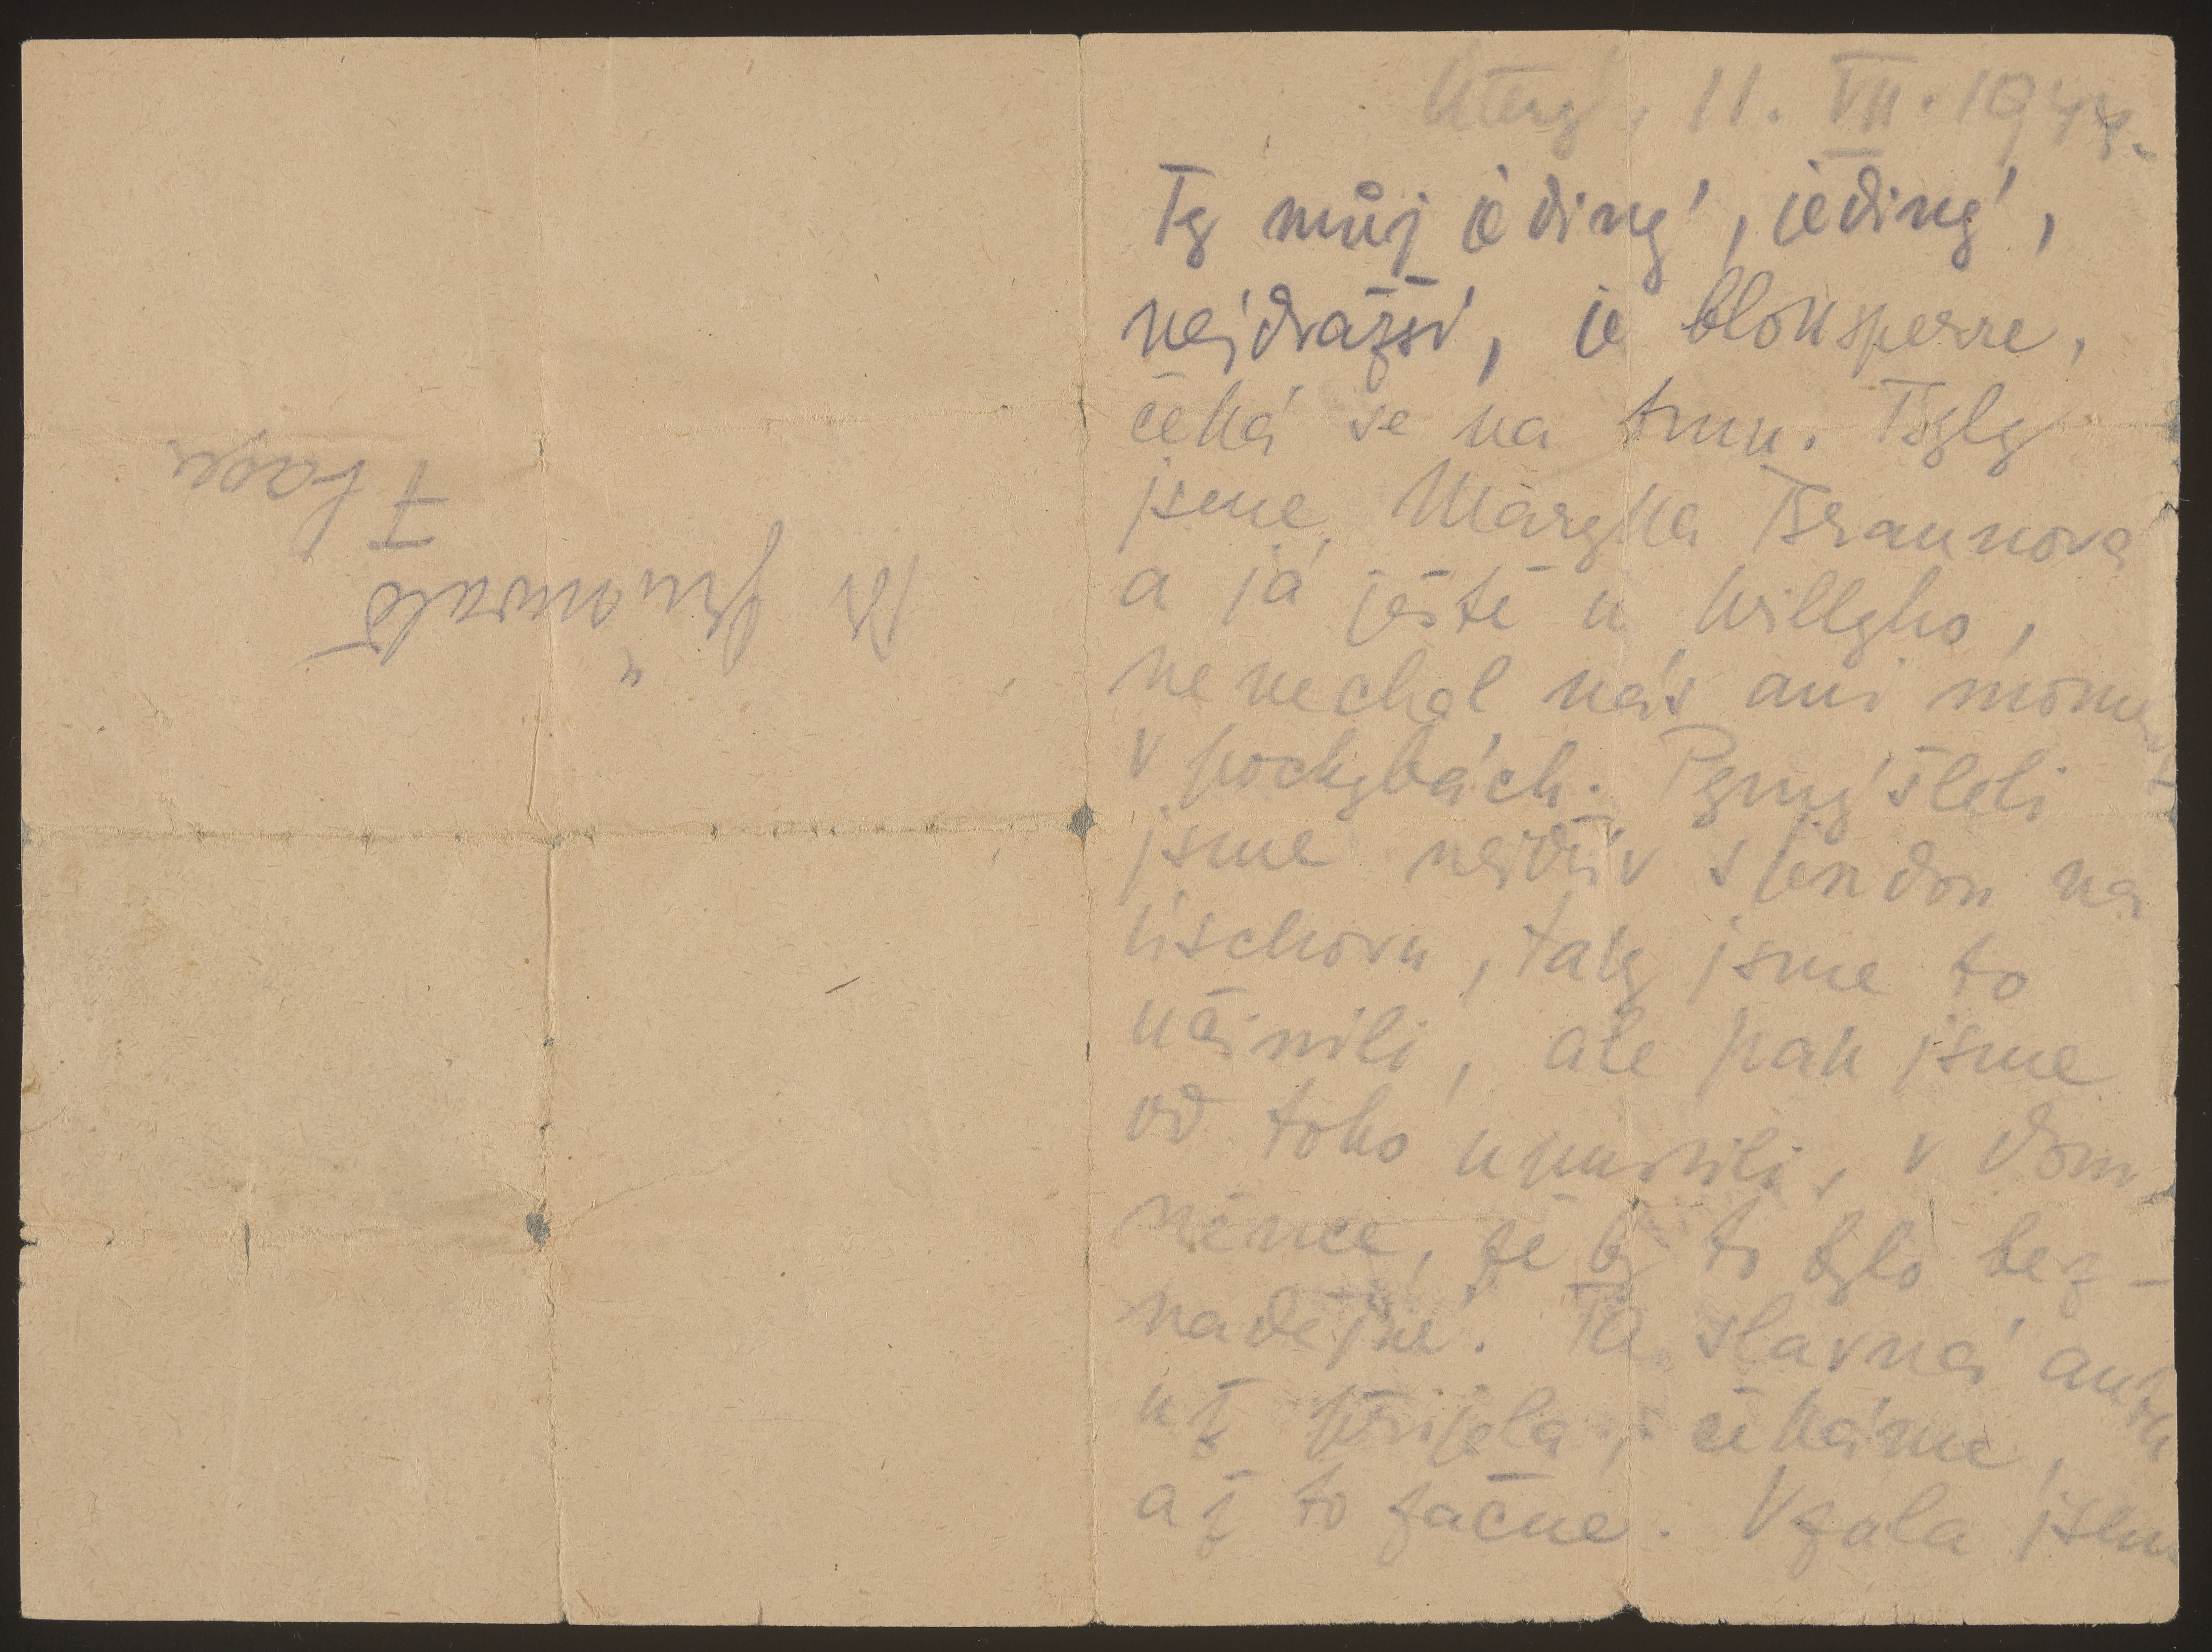 Úterý, 11. VII. 1944.
Ty můj jediný, jediný,
nejdražší, je bloksperre,
čeká se na tmu. Byly
jsme Maryka Braunová
a já ještě u Willyho,
nenechal nás ani moment
v pochybách. Pomýšleli
jsme nejdřív s Jendou na
úschovu, taky jsme to
učinili, ale pak jsme
od toho upustili, v dom-
něnce, že by to bylo bez-
nadějné. Ta slavná auta
už přijela, čekáme,
až to začne. Vzala jsem
Grünwald